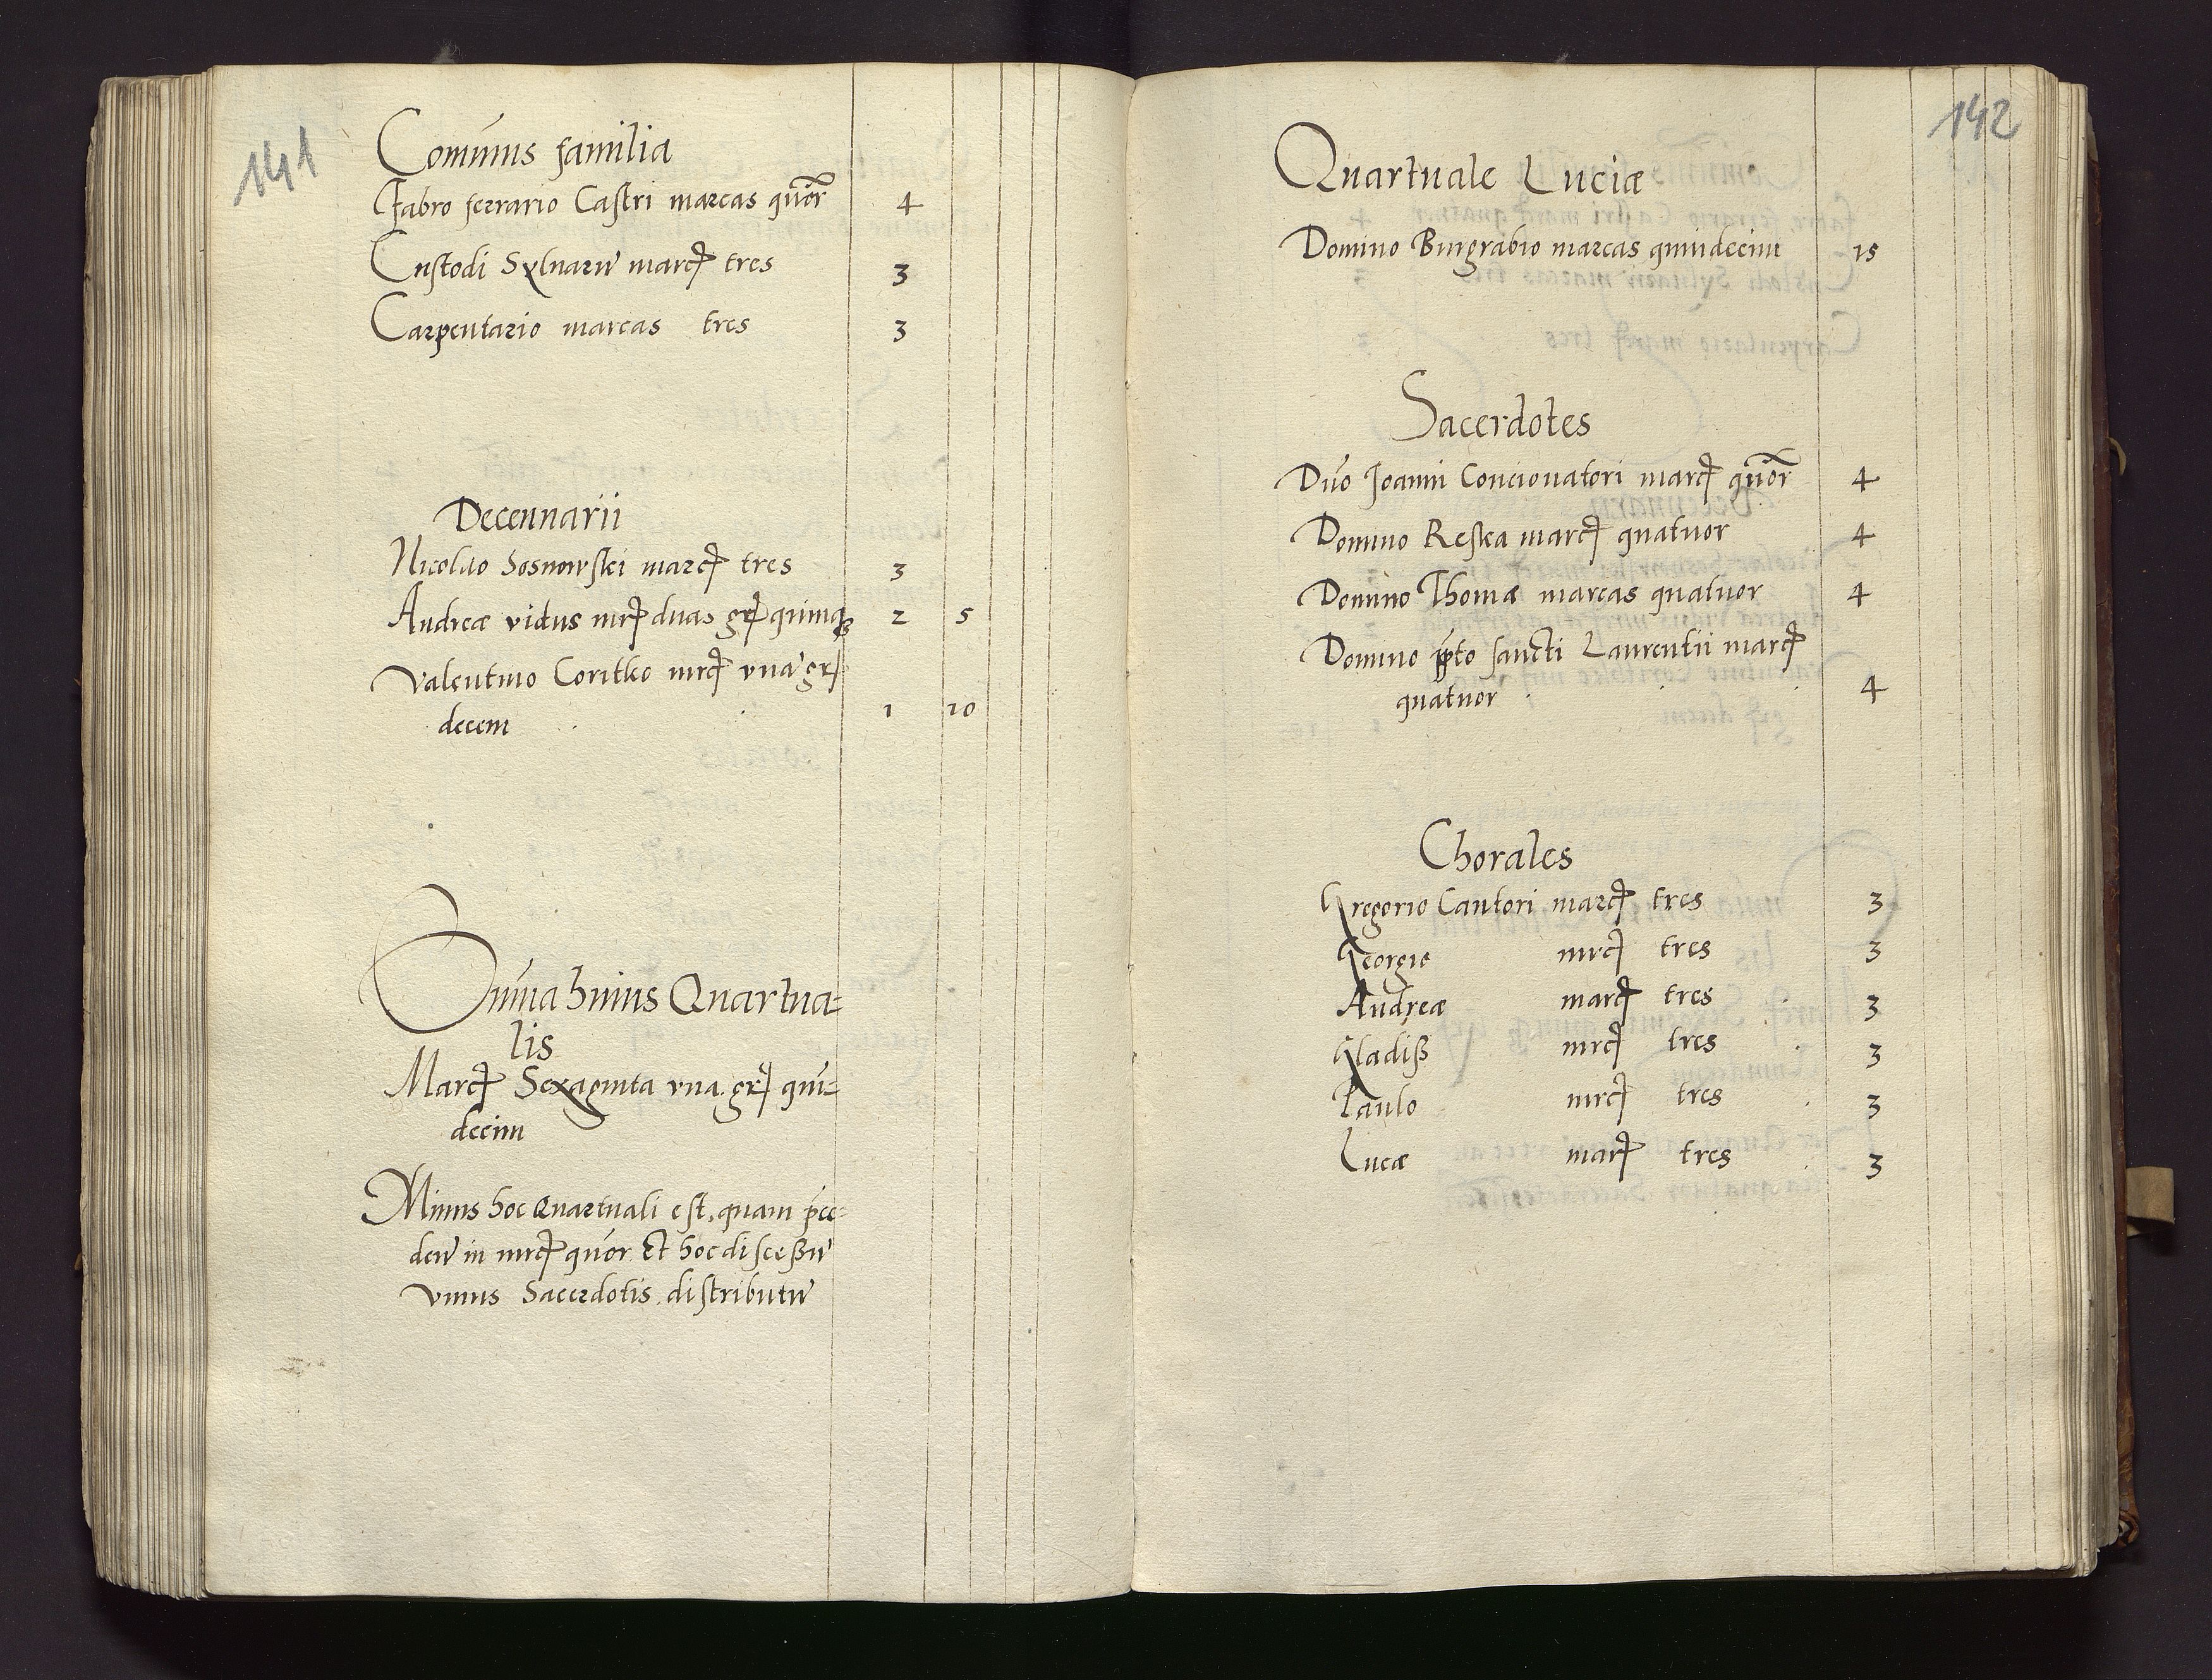 141
Comunis familia
Fabro ferrario Castri marcas quor 4
Custodi Sylvaru marc tres 3
Carpentario marcas tres 3
Decennarii
Nicolao Sosnowskei marc tres 3
Andreæ vidus mrc duas gr quinq 2 5
Valentino Coritko mrc vna gr
decem 1 10
Suma huius Quartua=
lis
Marc Sexaginta vna. gr qui=
decim
Minus hoc Quartuali est, quam pce=
den in mrc quor. Et hoc discessu
vnius Sacerdotis. distributu
142
Quartuale Luciæ
Domino Burgrabio marcas quindecim 15
Sacerdotes
Dno Joanni Concionatori marc quor 4
Domino Reska marc quatuor 4
Domino Thomæ marcas quatuor 4
Domino ppto sancti Laurentii marc
quatuor 4
Chorales
Gregorio Cantori marc tres 3
Georgio mrc tres 3
Andreæ marc tres 3
Gladiß mrc tres 3
Paulo mrc tres 3
Lucæ marc tres 3